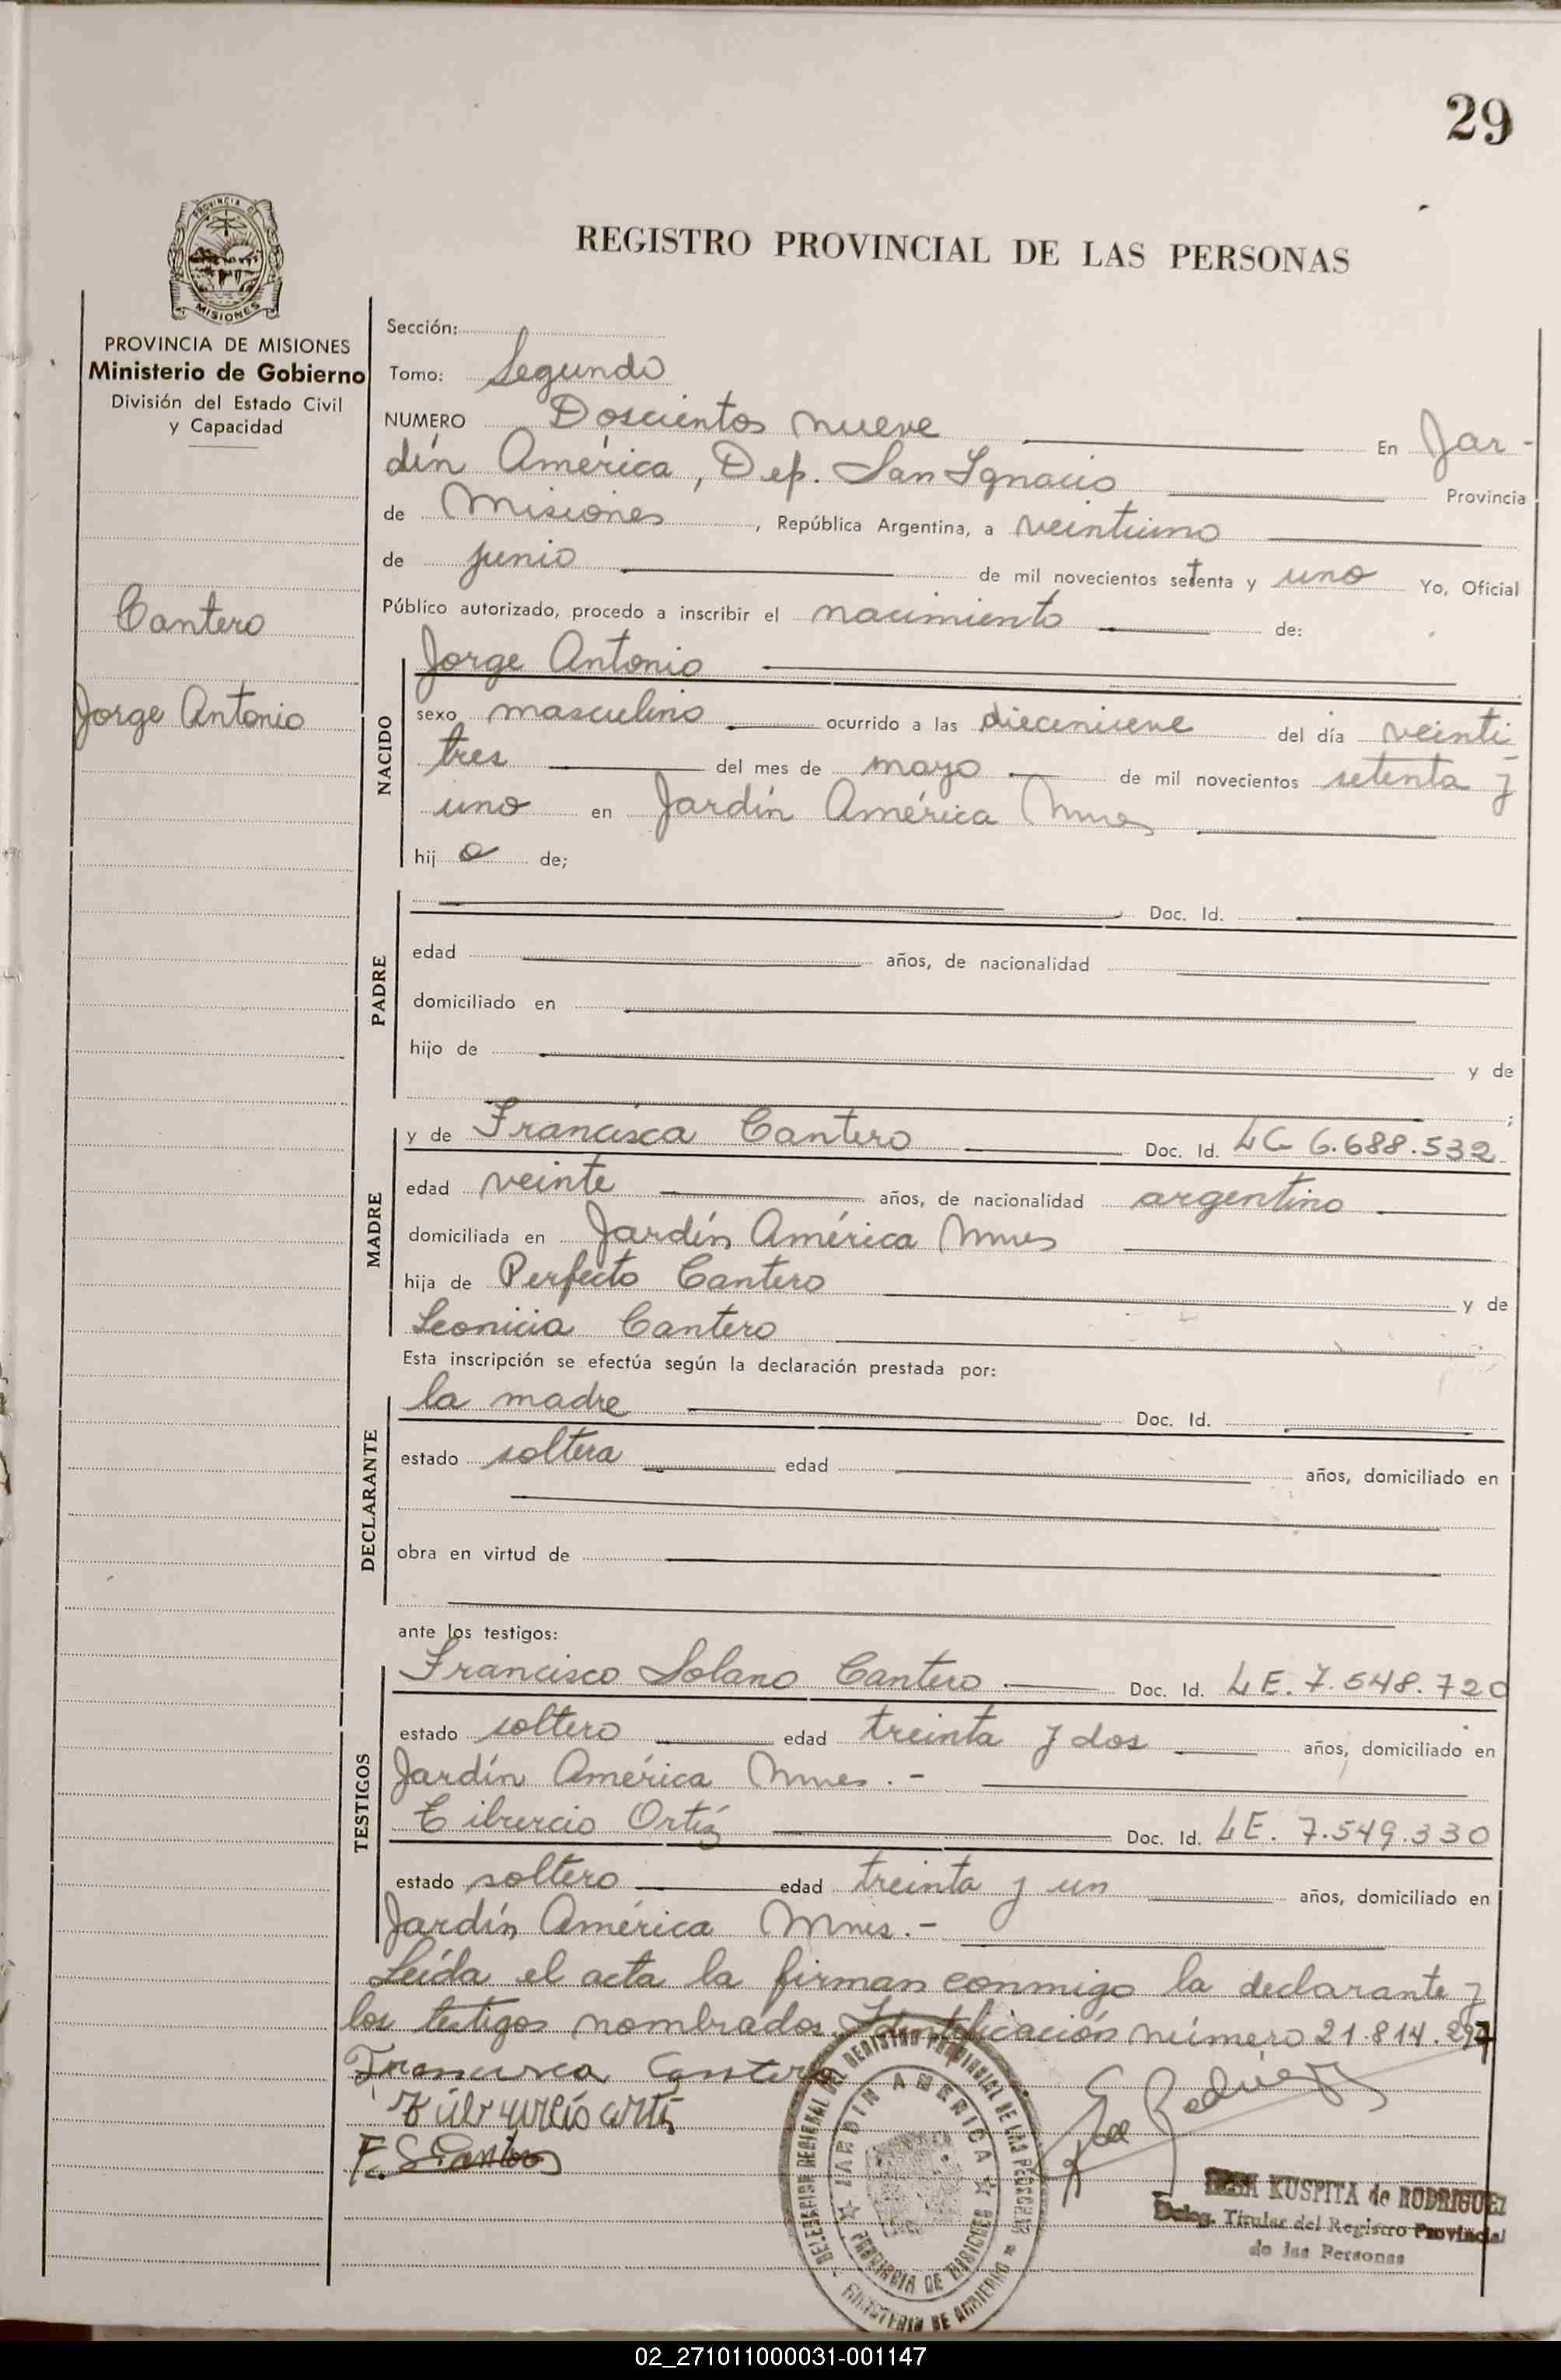 29
PROVINCIA DE
MISIONES
REGISTRO PROVINCIAL DE LAS PERSONAS
PROVINCIA DE MISIONES
Ministerio de Gobierno
División del Estado Civil
y Capacidad
Cantero
Jorge Antonio
Sección:
Tomo: Segundo
NUMERO Doscientos nueve En Jar-
dín América, Dep. San Ignacio Provincia
de Misiones, República Argentina, a veintiuno
de junio de mil novecientos setenta y uno Yo, Oficial
Público autorizado, procedo a inscribir el nacimiento de:
NACIDO
Jorge Antonio
sexo masculino ocurrido a las diecenueve del día veinti
tres del mes de mayo de mil novecientos setenta y
uno en Jardín América Mnes
hij o de;
PADRE
Doc. Id.
edad años, de nacionalidad
domiciliado en
hijo de y de
;
MADRE
y de Francisca Cantero Doc. Id. LC 6.688.532
edad veinte años, de nacionalidad argentino
domiciliada en Jardín América Mnes
hija de Perfecto Cantero y de
Leonicia Cantero
Esta inscripción se efectúa según la declaración prestada por:
DECLARANTE
la madre Doc. Id.
estado soltera edad años, domiciliado en
obra en virtud de
ante los testigos:
TESTIGOS
Francisco Solano Cantero Doc. Id. LE. 7.548.720
estado soltero edad treinta y dos años, domiciliado en
Jardín América Mnes.-
Tiburcio Ortíz Doc. Id. LE. 7.549.330
estado soltero edad treinta y un años, domiciliado en
Jardín América Mnes.-
Leída el acta la firman conmigo la declarante y
los testigos nombrados. Identificación número 21.814.297
Francisca Cantero
F. S. Cantero
DELEGACION REGIONAL DEL REGISTRO PROVINCIAL DE LAS PERSONAS
JARDIN AMERICA
PROVINCIA DE MISIONES
MINISTERIO DE GOBIERNO
KUSPITA de RODRIGUEZ
Deleg. Titular del Registro Provincial
de las Personas
02_271011000031-001147